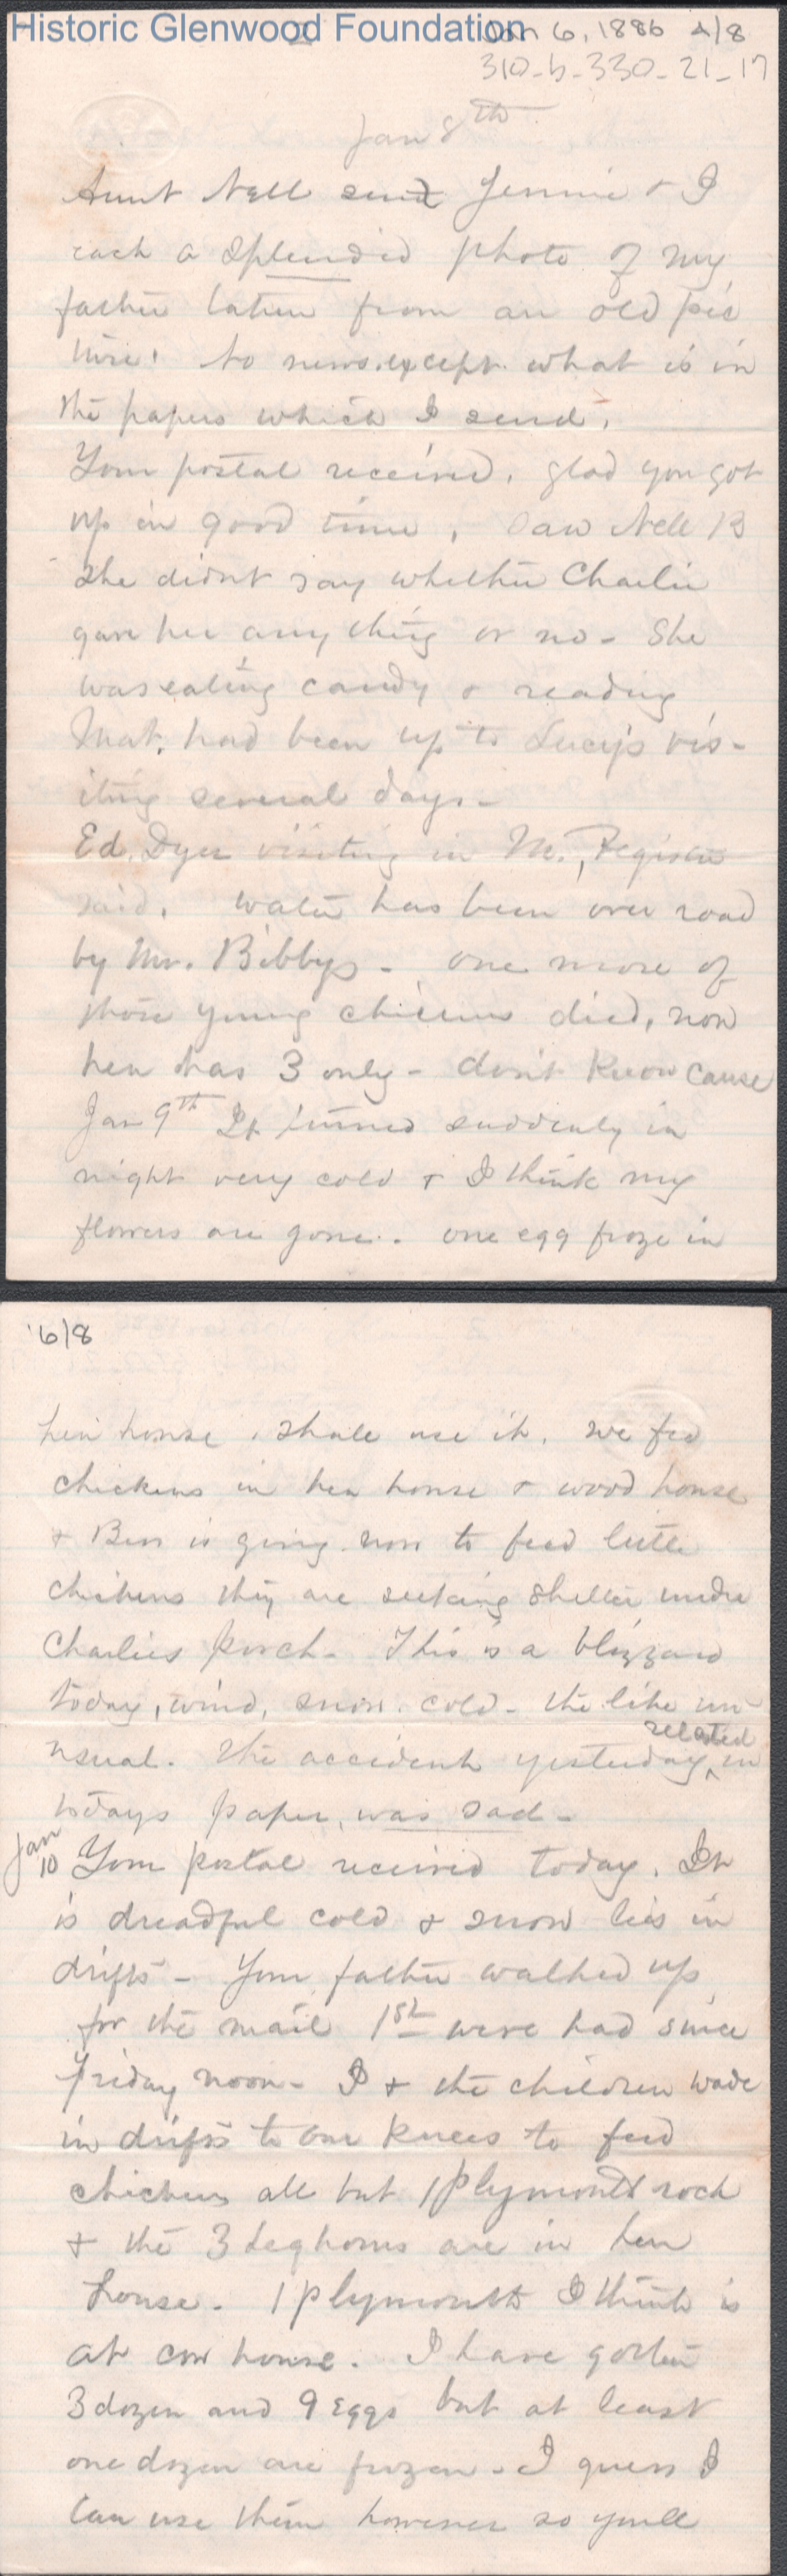 Historic Glenwood Foundation
Jan 6, 1886 4/8
310-b-330-21-17
Jan 8th
Aunt Nell send Jennie & I
each a splendid photo of my
father taken from an old pic
ture! No news except what is in
the papers which I send.
Your postal received, glad you got
up in good time, Saw Nell B
She didnt say whether Charlie
gave her any thing or no - She
was eating candy & reading
Mat, had been up to Lucy's vis-
iting several days -
Ed. Dyer visiting in M., Register
said. water has been over road
by Mr. Bibbys - one more of
those young chickens died, now
hen has 3 only - don't know cause
Jan 9th It turned suddenly in
night very cold & I think my
flowers are gone. one egg froze in
6/8
hen house, shall use it. we fed
chickens in hen house & wood house
& Ben is going now to feed little
chickens they are seeking shelter under
Charlies porch - This is a blizzard
today, wind, snow. cold - the like un-
related
usual. The accident yesterday ^ in
todays paper, was sad -
Jan
10 Your postal received today. It
is dreadful cold & snow lies in
drifts - Your father walked up
for the mail 1st weve had since
Friday noon - I & the children wade
in drifts to our knees to feed
chickens all but 1 Plymouth rock
& the 3 Leghorns are in hen
house. 1 Plymouth I think is
at cow house. I have gotten
3 dozen and 9 Eggs but at least
one dozen are frozen - I guess I
can use them however so youll